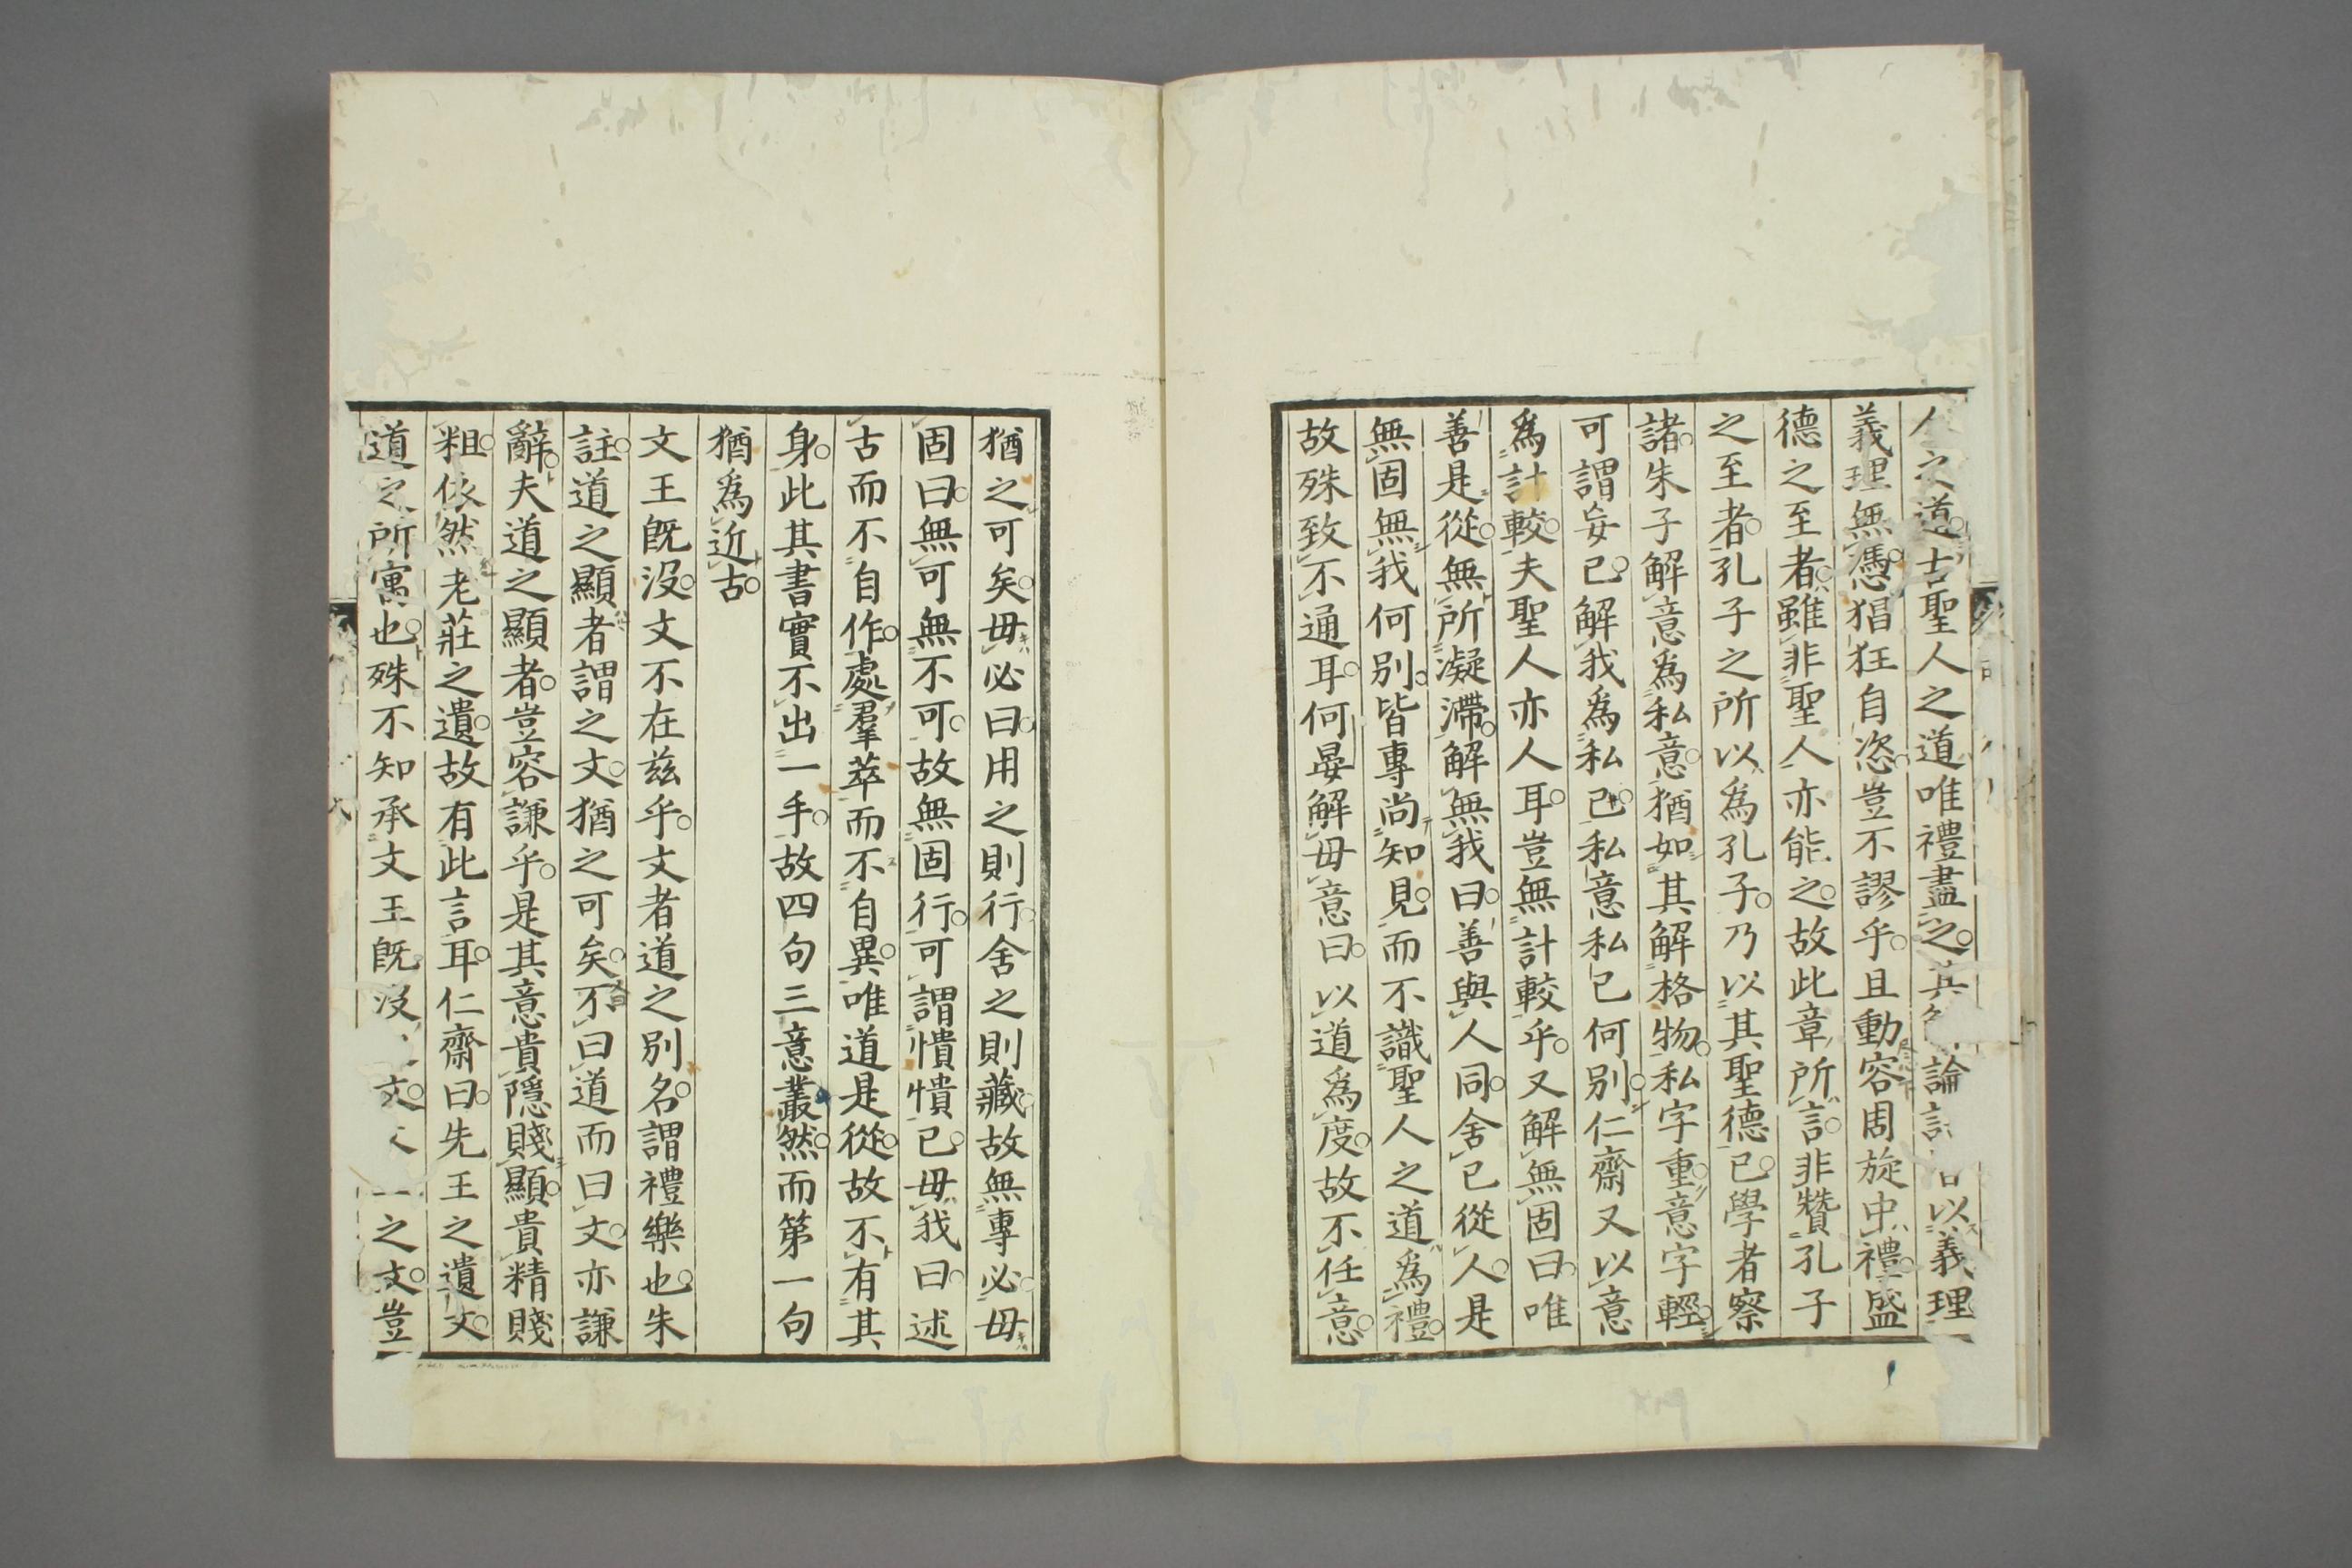 人之道古聖人之道唯禮盡之其論以義理
義理無憑猖狂自恣豈不謬乎且動容周旋中禮盛
德之至者雖非聖人亦能之故此章所言非贊孔子
之至者孔子之所以爲孔子乃以其聖德已學者察
諸朱子解意爲私意猶如其解格物私字重意字輕
可謂妄已解我爲私己私意私己何別仁齋又以意
爲計較夫聖人亦人耳豈無計較乎又解無固曰唯
善是從無所凝滯解無我曰善與人同舍己從人是
無固無我何別皆專尚知見而不識聖人之道爲禮
故殊致不通耳何晏解毋意曰以道爲度故不任意
猶之可矣毋必曰用之則行舍之則藏故無專必毋
固曰無可無不可故無固行可謂憒憒已毋我曰述
古而不自作處羣萃而不自異唯道是從故不有其
身此其書實不出一手故四句三意叢然而第一句
猶爲近古
文王既沒文不在茲乎文者道之別名謂禮樂也朱
註道之顯者謂之文猶之可矣不曰道而曰文亦謙
辭夫道之顯者豈容謙乎是其意貴隱賤顯貴精賤
粗依然老莊之遺故有此言耳仁齋曰先王之遺文
道之所寓也殊不知承文王既沒文之文豈